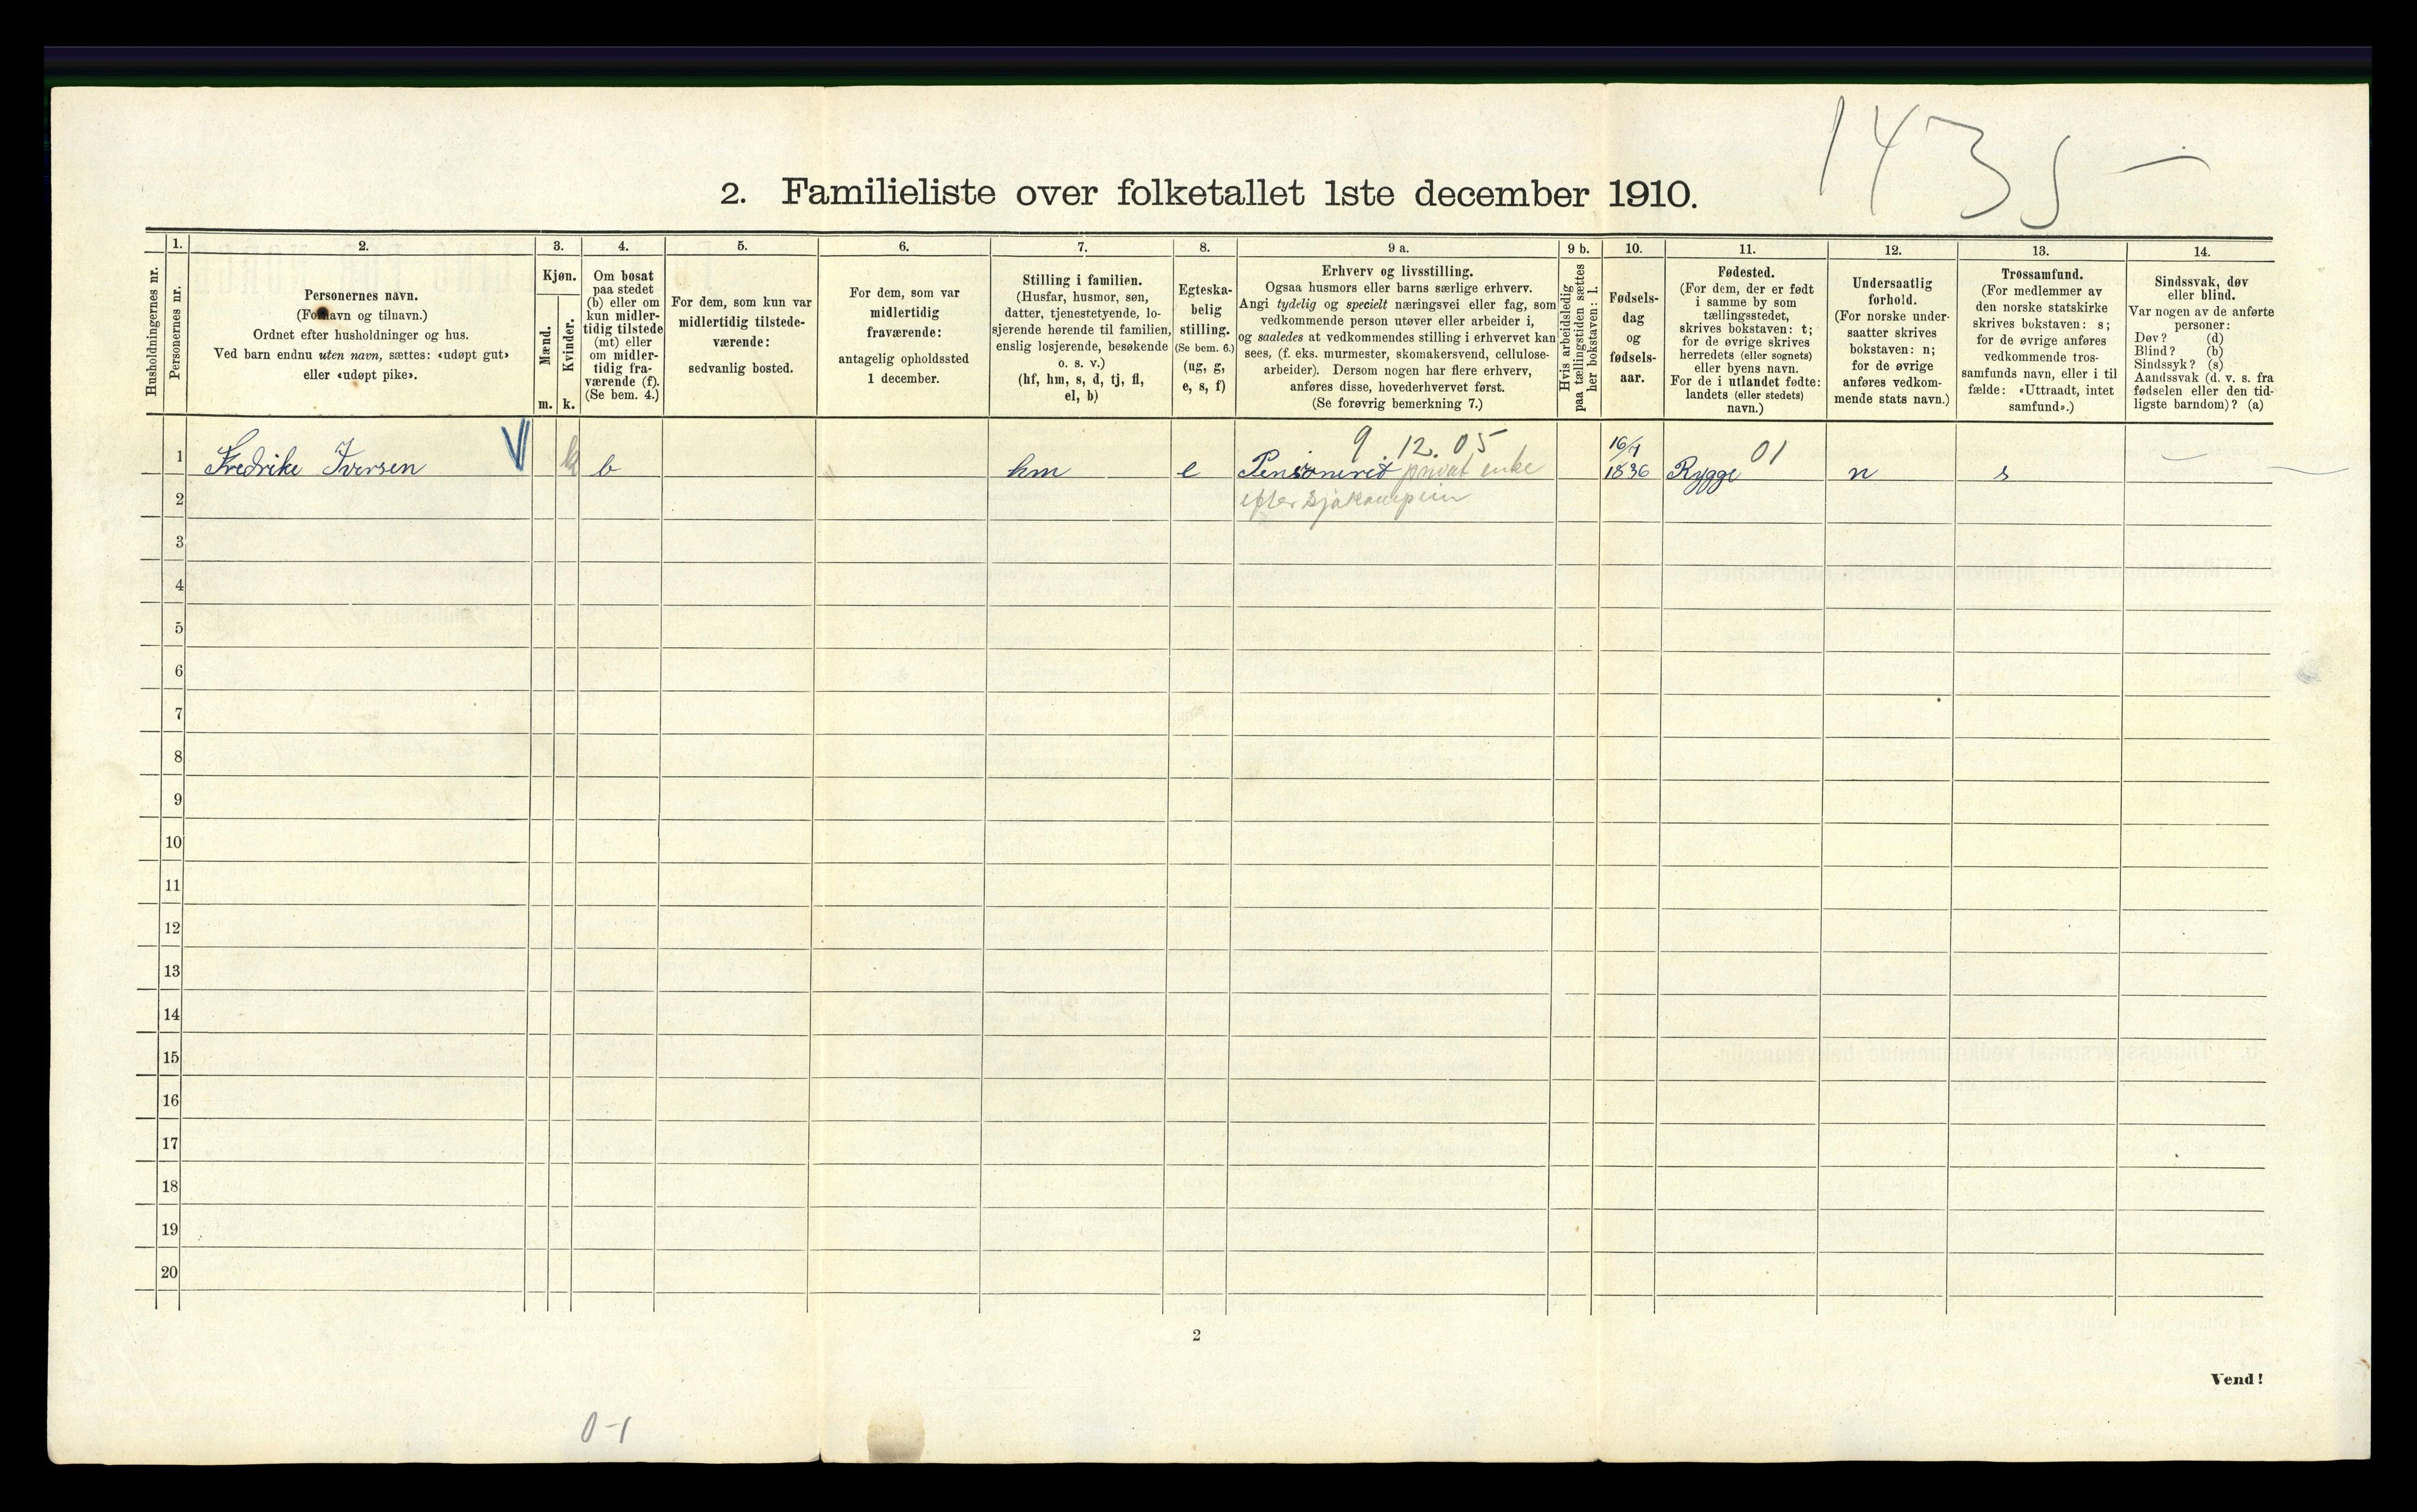 1435 —
2. Familieliste over folketallet 1ste december 1910.
Husholdningernes nr.
1.
Personernes nr.
2.
Personernes navn.
(Fornavn og tilnavn.)
Ordnet efter husholdninger og hus.
Ved barn endnu uten navn, sættes: «udøpt gut»
eller «udøpt pike».
3.
Kjøn.
Mænd.
Kvinder.
m. k.
4.
Om bosat
paa stedet
(b) eller om
kun midler-
tidig tilstede
(mt) eller
om midler-
tidig fra-
værende (f).
(Se bem. 4.)
5.
For dem, som kun var
midlertidig tilstede-
værende:
sedvanlig bosted.
6.
For dem, som var
midlertidig
fraværende:
antagelig opholdssted
1 december.
7.
Stilling i familien.
(Husfar, husmor, søn,
datter, tjenestetyende, lo-
sjerende hørende til familien,
enslig losjerende, besøkende
o. s. v.)
(hf, hm, s, d, tj, fl,
el, b)
8.
Egteska-
belig
stilling.
(Se bem. 6.)
(ug, g,
e, s, f)
9 a.
Erhverv og livsstilling.
Ogsaa husmors eller barns særlige erhverv.
Angi tydelig og specielt næringsvei eller fag, som
vedkommende person utøver eller arbeider i,
og saaledes at vedkommendes stilling i erhvervet kan
sees, (f. eks. murmester, skomakersvend, cellulose-
arbeider). Dersom nogen har flere erhverv,
anføres disse, hovederhvervet først.
(Se forøvrig bemerkning 7.)
9 b.
Hvis arbeidsledig
paa tællingstiden sættes
her bokstaven: l.
10.
Fødsels-
dag
og
fødsels-
aar.
11.
Fødested.
(For dem, der er født
i samme by som
tællingsstedet,
skrives bokstaven: t;
for de øvrige skrives
herredets (eller sognets)
eller byens navn.
For de i utlandet fødte:
landets (eller stedets)
navn.)
12.
Undersaatlig
forhold.
(For norske under-
saatter skrives
bokstaven: n;
for de øvrige
anføres vedkom-
mende stats navn.)
13.
Trossamfund.
(For medlemmer av
den norske statskirke
skrives bokstaven: s;
for de øvrige anføres
vedkommende tros-
samfunds navn, eller i til
fælde: «Uttraadt, intet
samfund».)
14.
Sindssvak, døv
eller blind.
Var nogen av de anførte
personer:
Døv? (d)
Blind? (b)
Sindssyk? (s)
Aandssvak (d. v. s. fra
fødselen eller den tid-
ligste barndom)? (a)
9.12.05
16/4
01
1 Fredrike Iversen k b hm e Pensioneret privat enke 1836 Rygge n s
2 efter
3
4
5
6
7
8
9
10
11
12
13
14
15
16
17
18
19
20
2
Vend!
0-1